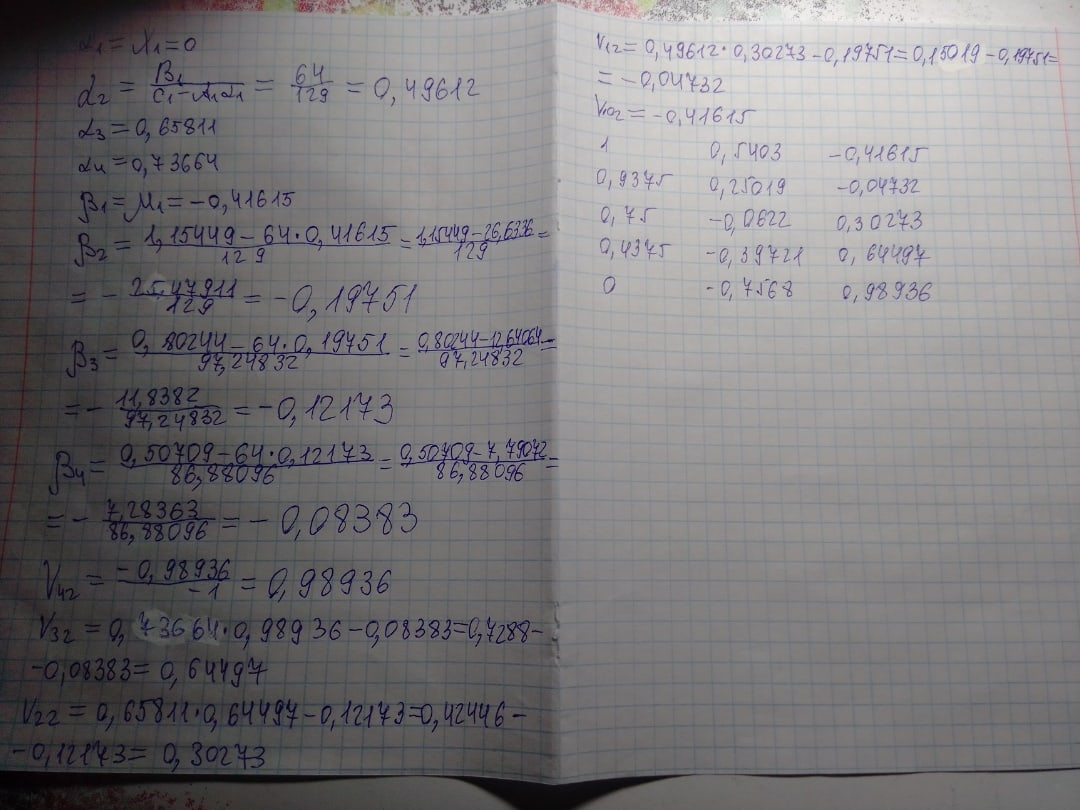 α₁ = ℵ₁ = 0
α₂ = B₁/(C₁ - A₁α₁) = 64/129 = 0,49612
α₃ = 0,65811
α₄ = 0,73664
β₁ = μ₁ = -0,41615
β₂ = (1,15449 - 64·0,41615)/129 = (1,15449 - 26,6336)/129 =
= - 25,47911/129 = -0,19751
β₃ = (0,80244 - 64·0,19751)/97,24832 = (0,80244 - 12,64064)/97,24832 =
= - 11,8382/97,24832 = -0,12173
β₄ = (0,50709 - 64·0,12173)/86,88096 = (0,50709 - 7,79072)/86,88096 =
= - 7,28363/86,88096 = - 0,08383
V₄₂ = -0,98936/-1 = 0,98936
V₃₂ = 0,73664·0,98936 - 0,08383 = 0,7288 -
- 0,08383 = 0,64497
V₂₂ = 0,65811·0,64497 - 0,12173 = 0,42446 -
- 0,12173 = 0,30273
V₁₂ = 0,49612·0,30273 - 0,19751 = 0,15019 - 0,19751 =
= -0,04732
V₀₂ = -0,41615
1 0,5403 -0,41615
0,9375 0,25019 -0,04732
0,75 -0,0622 0,30273
0,4375 -0,39721 0,64497
0 -0,7568 0,98936